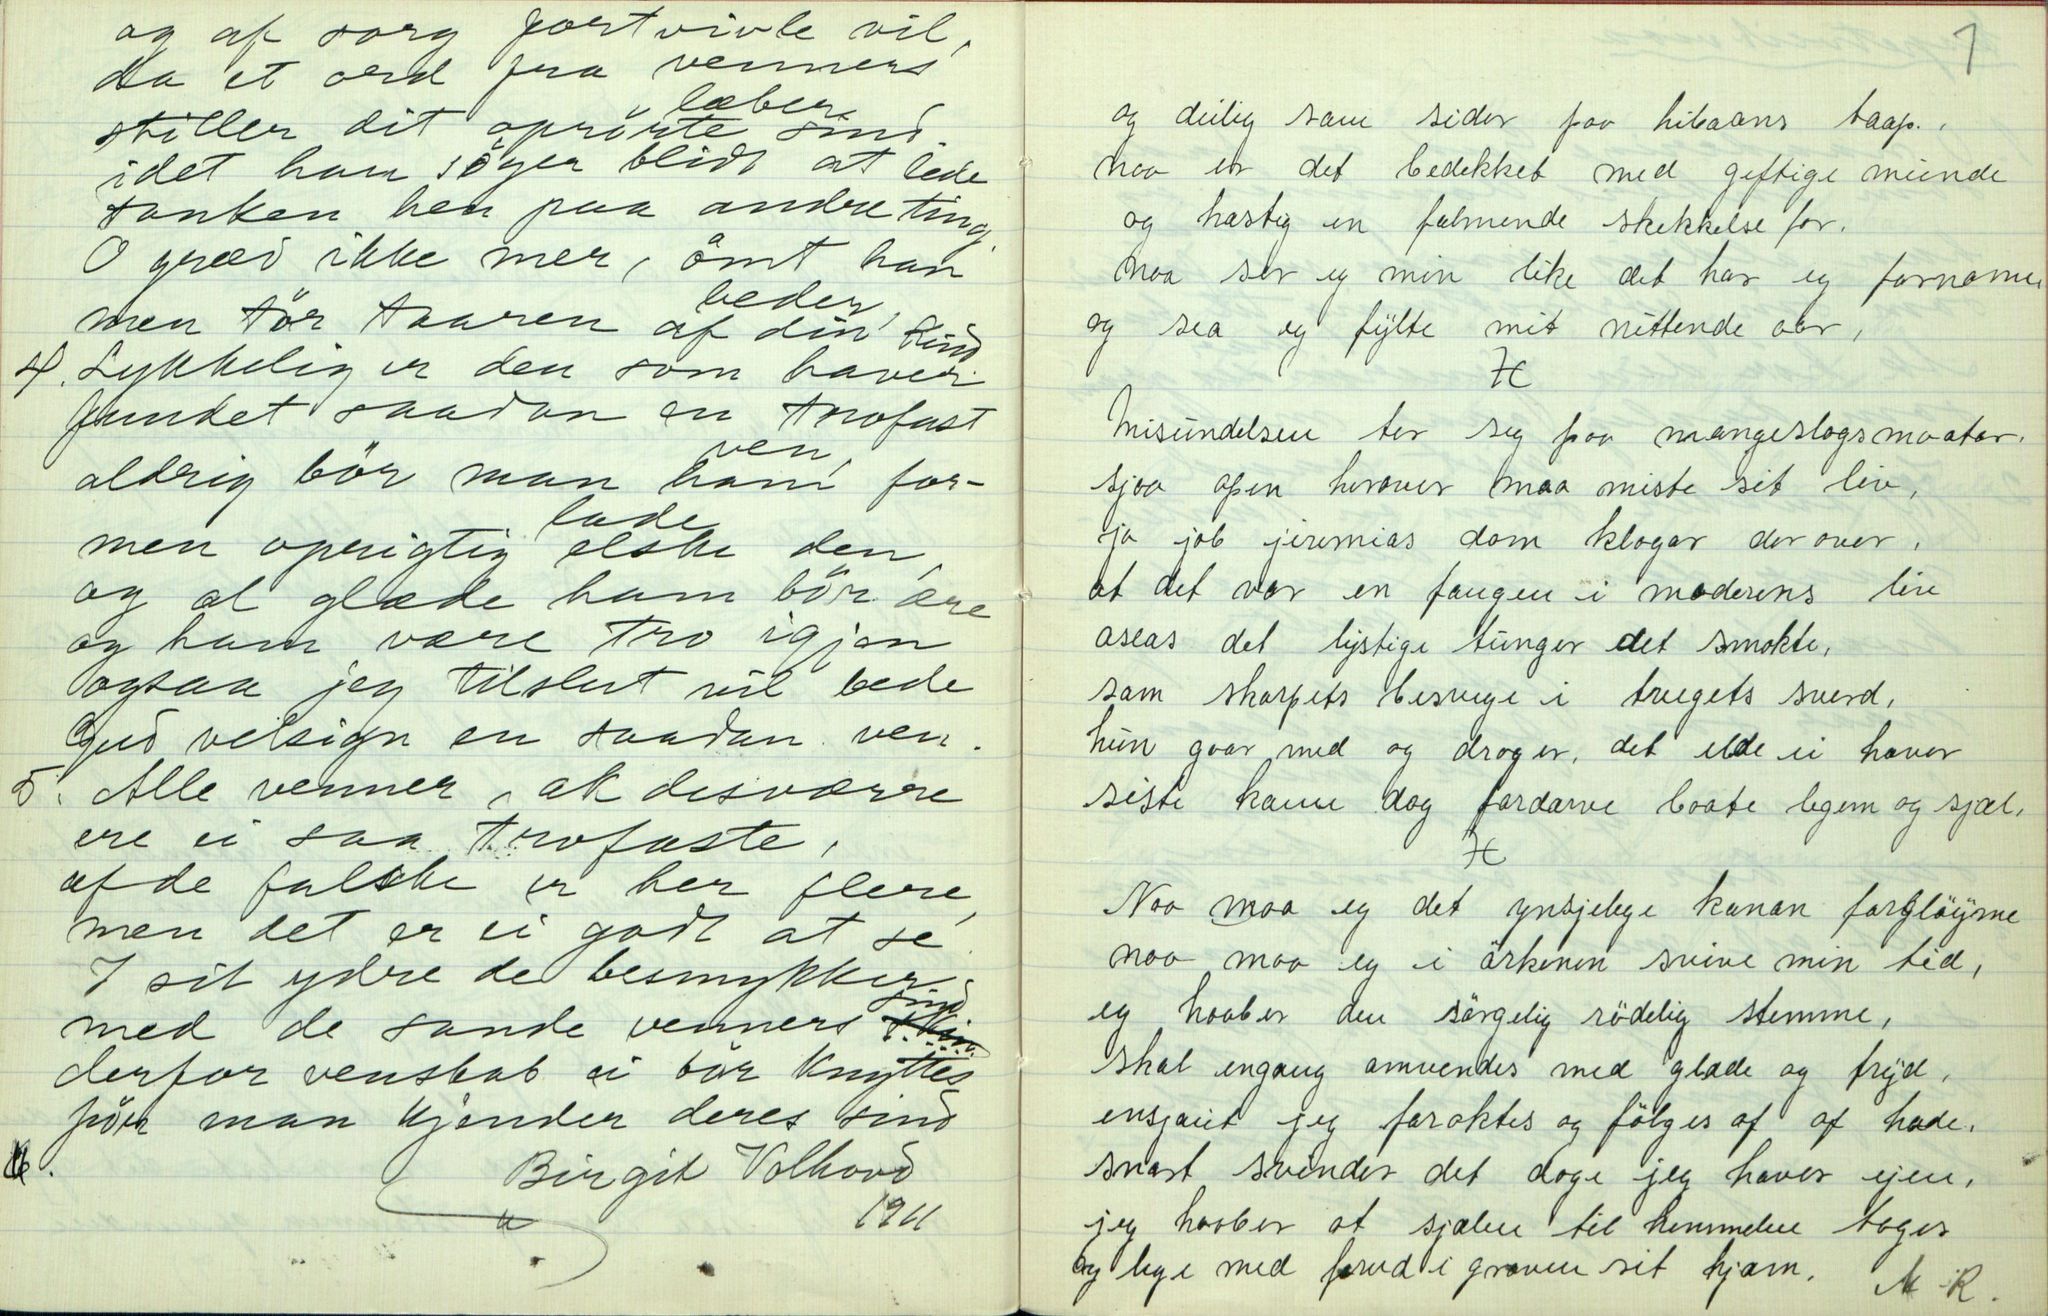 og af sorg fortvivle vil,
da et ord fra venners
læber
stiller dit oprörte sind
idet han söger blidt at lede
tanken hen paa andre ting.
O græd ikke mer, ömt han
beder,
men tör taaren af din kind
4. Lykkelig er den som haver
fundet saadan en trofast
ven,
aldrig bör man ham for-
lade
men oprigtig elske den,
og at glæde ham bör ære
og ham være tro igjen
ogsaa jeg tilslut vil bede
Gud velsign en saadan ven.
5. Alle venner, ak desværre
ere ei saa trofaste,
af de falske er her flere,
men det er ei godt at se
I sit ydre de besmykker
sind
med de sande venners skin
derfor venskab ei bör knyttes
för man kjender deres sind
Birgit Volhovd
1911
1
og deilig som sider paa libaans taap.
naa er det bedekket med geftige munde
og hastig en falmende skekkelse for.
Naa ser eg min like det har eg fornome
og sea eg fylte mit nittende aar,
Misundelsen ter seg paa mangeslags maatar.
sjaa open herover maa miste sit liv,
ja job jeremias dom klagar der over,
at det var en fangen i moderens liv
aseas det lystige tunger det smakte,
som skarpets besvege i tvegets sverd,
hun gaar med og drager, det elde ei haver
siste kann dog fordarve baate legem og sjæl.
Naa maa eg det ynsjelege kanan forgløyme
naa maa eg i örkenen svive min tid,
eg haaber den sörgelig rödelig stemme,
skal engang omvendes med glade og fryd,
ensjönt jeg foraktes og fölges af af hade.
snart svinder det dage jeg haver ejen,
jeg haaber at sjælen til himmelen tages
og lege med i graven sit hjæm. M R.